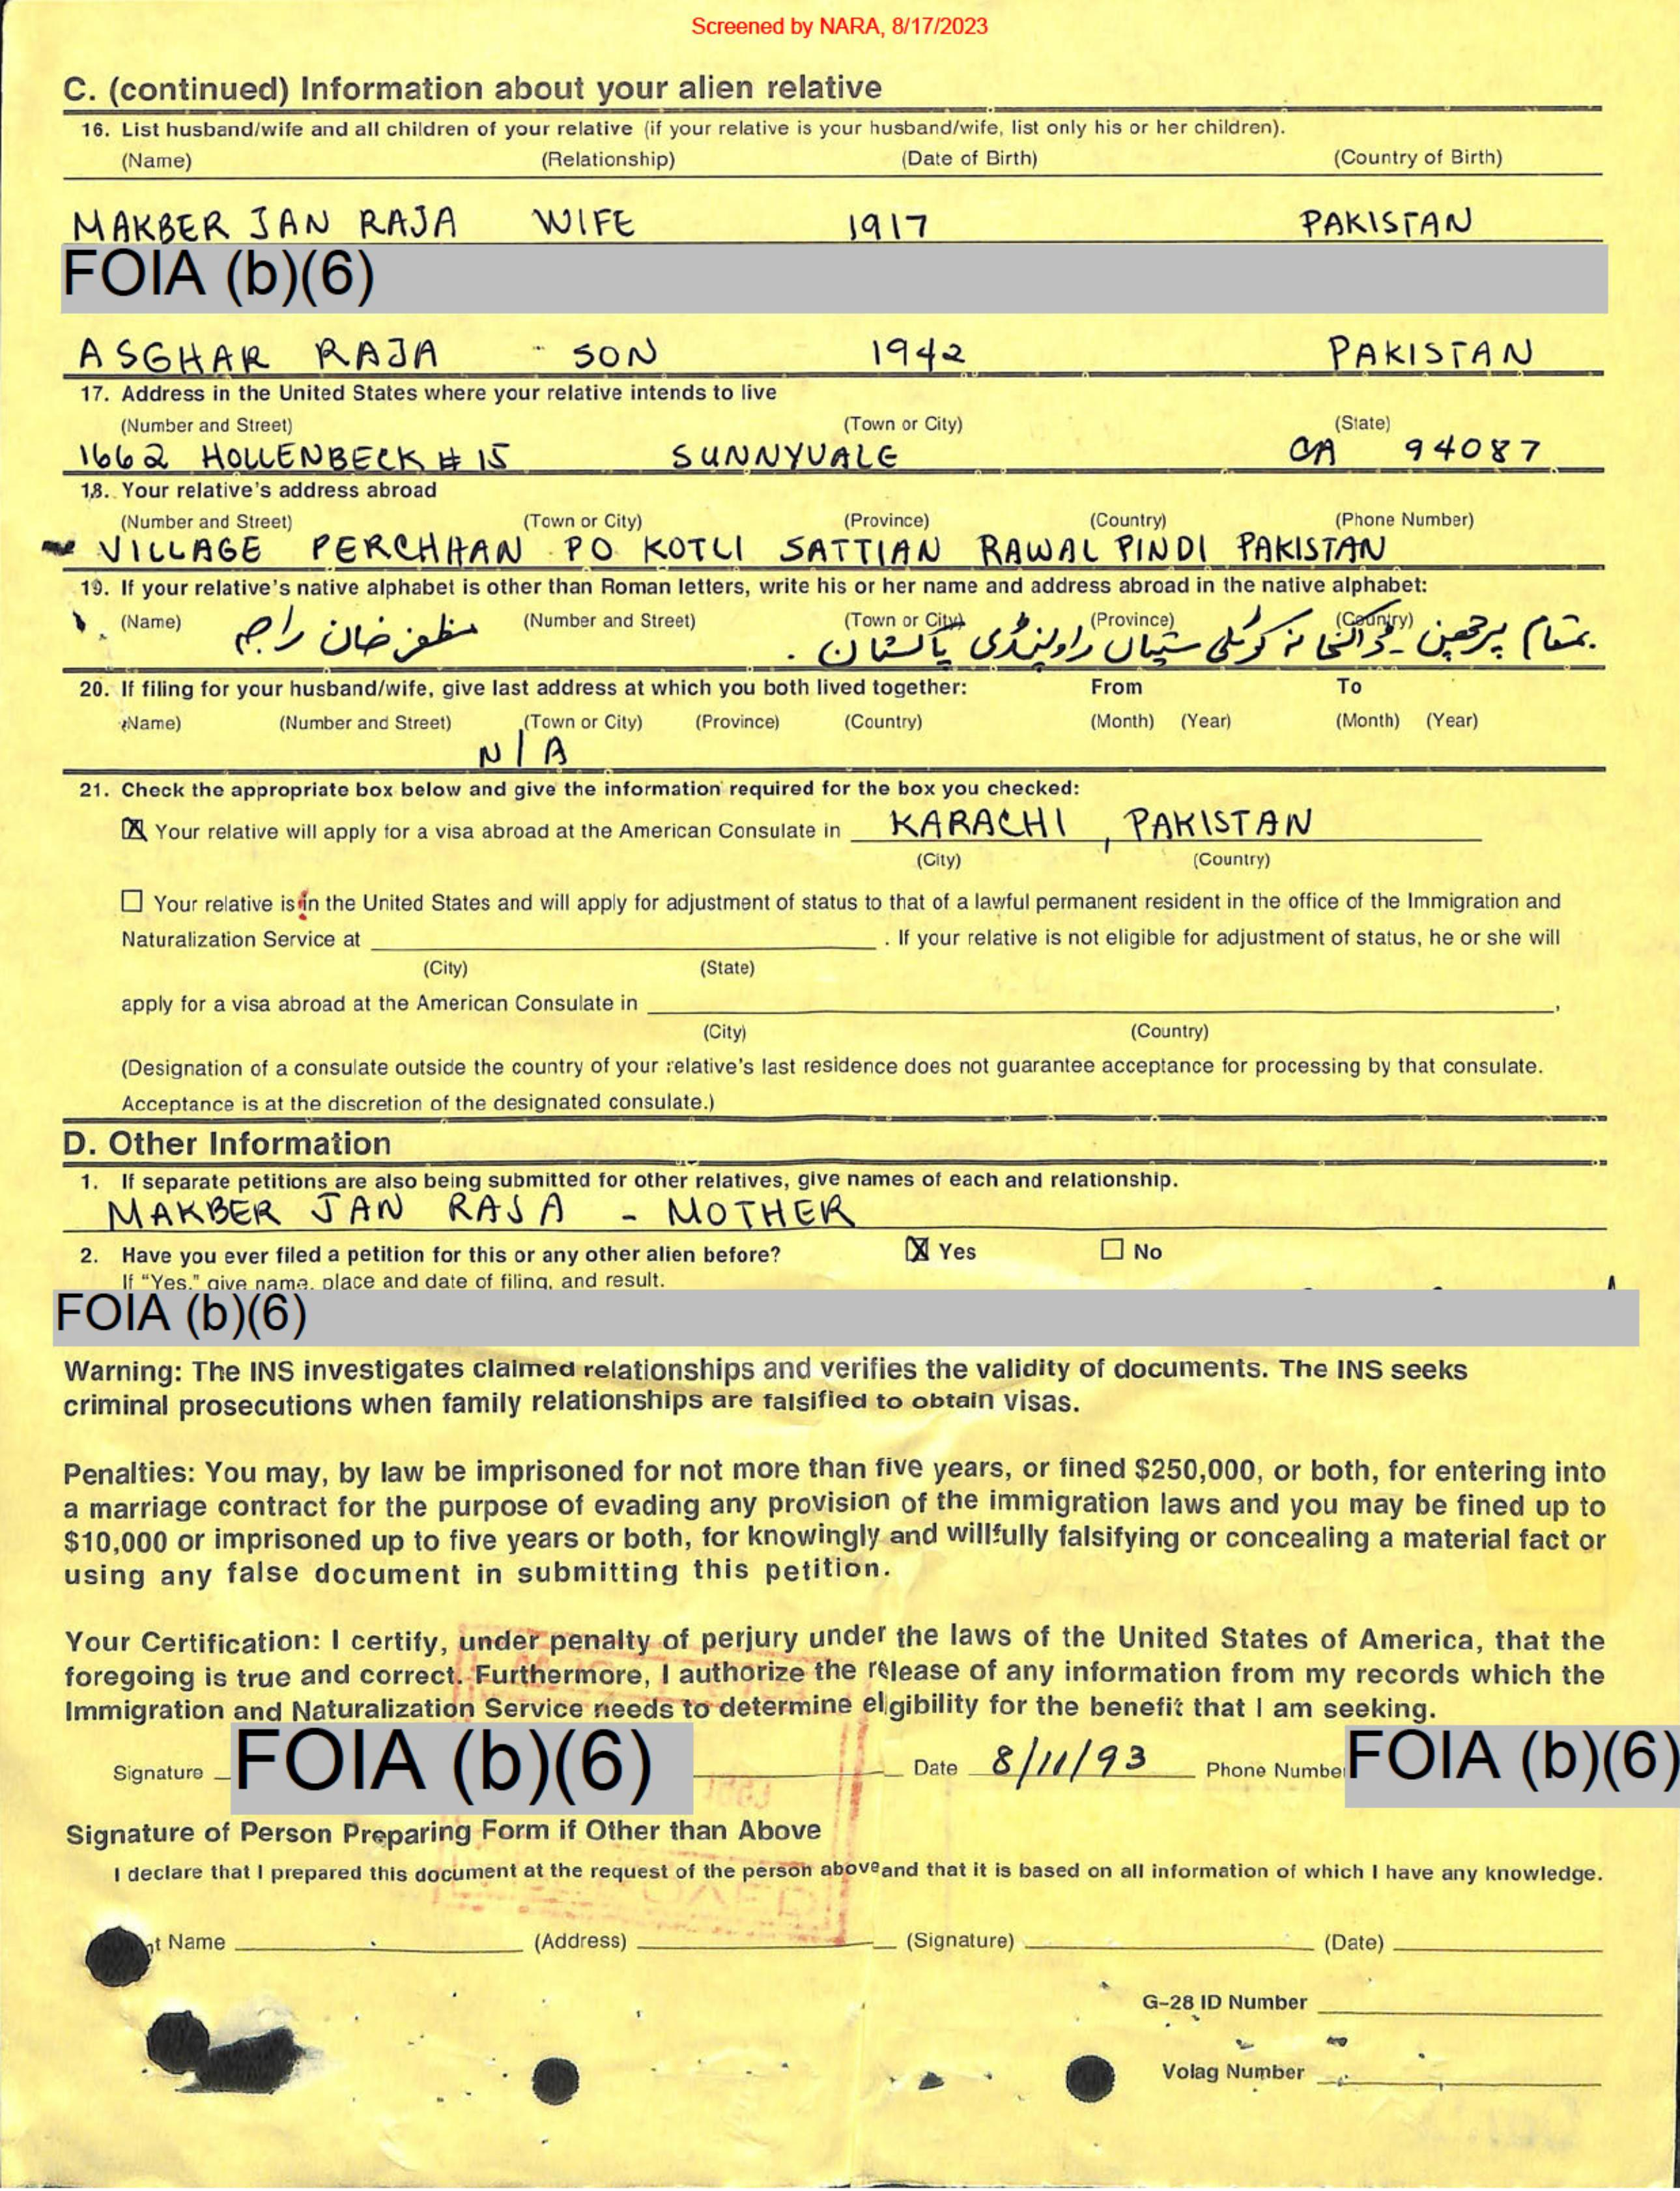 Screened by NARA, 8/17/2023
C. (continued) Information about your alien relative
16. List husband/wife and all children of your relative (if your relative is your husband/wife, list only his or her children).
(Name) (Relationship) (Date of Birth) (Country of Birth)
MAKBER JAN RAJA WIFE 1917 PAKISTAN
FOIA (b)(6)
ASGHAR RAJA SON 1942 PAKISTAN
17. Address in the United States where your relative intends to live
(Number and Street) (Town or City) (State)
1662 HOLLENBECK # 15 SUNNYVALE CA 94087
18. Your relative's address abroad
(Number and Street) (Town or City) (Province) (Country) (Phone Number)
VILLAGE PERCHHAN PO KOTLI SATTIAN RAWALPINDI PAKISTAN
19. If your relative's native alphabet is other than Roman letters, write his or her name and address abroad in the native alphabet:
(Name) (Number and Street) (Town or City) (Province) (Country)
مظفر خان راجہ بمقام پرچھن ۔ ڈاکخانہ کوٹلی ستیاں راولپنڈی پاکستان .
20. If filing for your husband/wife, give last address at which you both lived together: From To
(Name) (Number and Street) (Town or City) (Province) (Country) (Month) (Year) (Month) (Year)
N/A
21. Check the appropriate box below and give the information required for the box you checked:
☒ Your relative will apply for a visa abroad at the American Consulate in KARACHI , PAKISTAN
(City) (Country)
☐ Your relative is in the United States and will apply for adjustment of status to that of a lawful permanent resident in the office of the Immigration and
Naturalization Service at ____ . If your relative is not eligible for adjustment of status, he or she will
(City) (State)
apply for a visa abroad at the American Consulate in ____ ,
(City) (Country)
(Designation of a consulate outside the country of your relative's last residence does not guarantee acceptance for processing by that consulate.
Acceptance is at the discretion of the designated consulate.)
D. Other Information
1. If separate petitions are also being submitted for other relatives, give names of each and relationship.
MAKBER JAN RAJA - MOTHER
2. Have you ever filed a petition for this or any other alien before? ☒ Yes ☐ No
If "Yes," give name, place and date of filing, and result.
FOIA (b)(6)
Warning: The INS investigates claimed relationships and verifies the validity of documents. The INS seeks
criminal prosecutions when family relationships are falsified to obtain visas.
Penalties: You may, by law be imprisoned for not more than five years, or fined $250,000, or both, for entering into
a marriage contract for the purpose of evading any provision of the immigration laws and you may be fined up to
$10,000 or imprisoned up to five years or both, for knowingly and willfully falsifying or concealing a material fact or
using any false document in submitting this petition.
Your Certification: I certify, under penalty of perjury under the laws of the United States of America, that the
foregoing is true and correct. Furthermore, I authorize the release of any information from my records which the
Immigration and Naturalization Service needs to determine elgibility for the benefit that I am seeking.
Signature FOIA (b)(6) Date 8/11/93 Phone Number FOIA (b)(6)
Signature of Person Preparing Form if Other than Above
I declare that I prepared this document at the request of the person above and that it is based on all information of which I have any knowledge.
nt Name (Address) (Signature) (Date)
G-28 ID Number
Volag Number